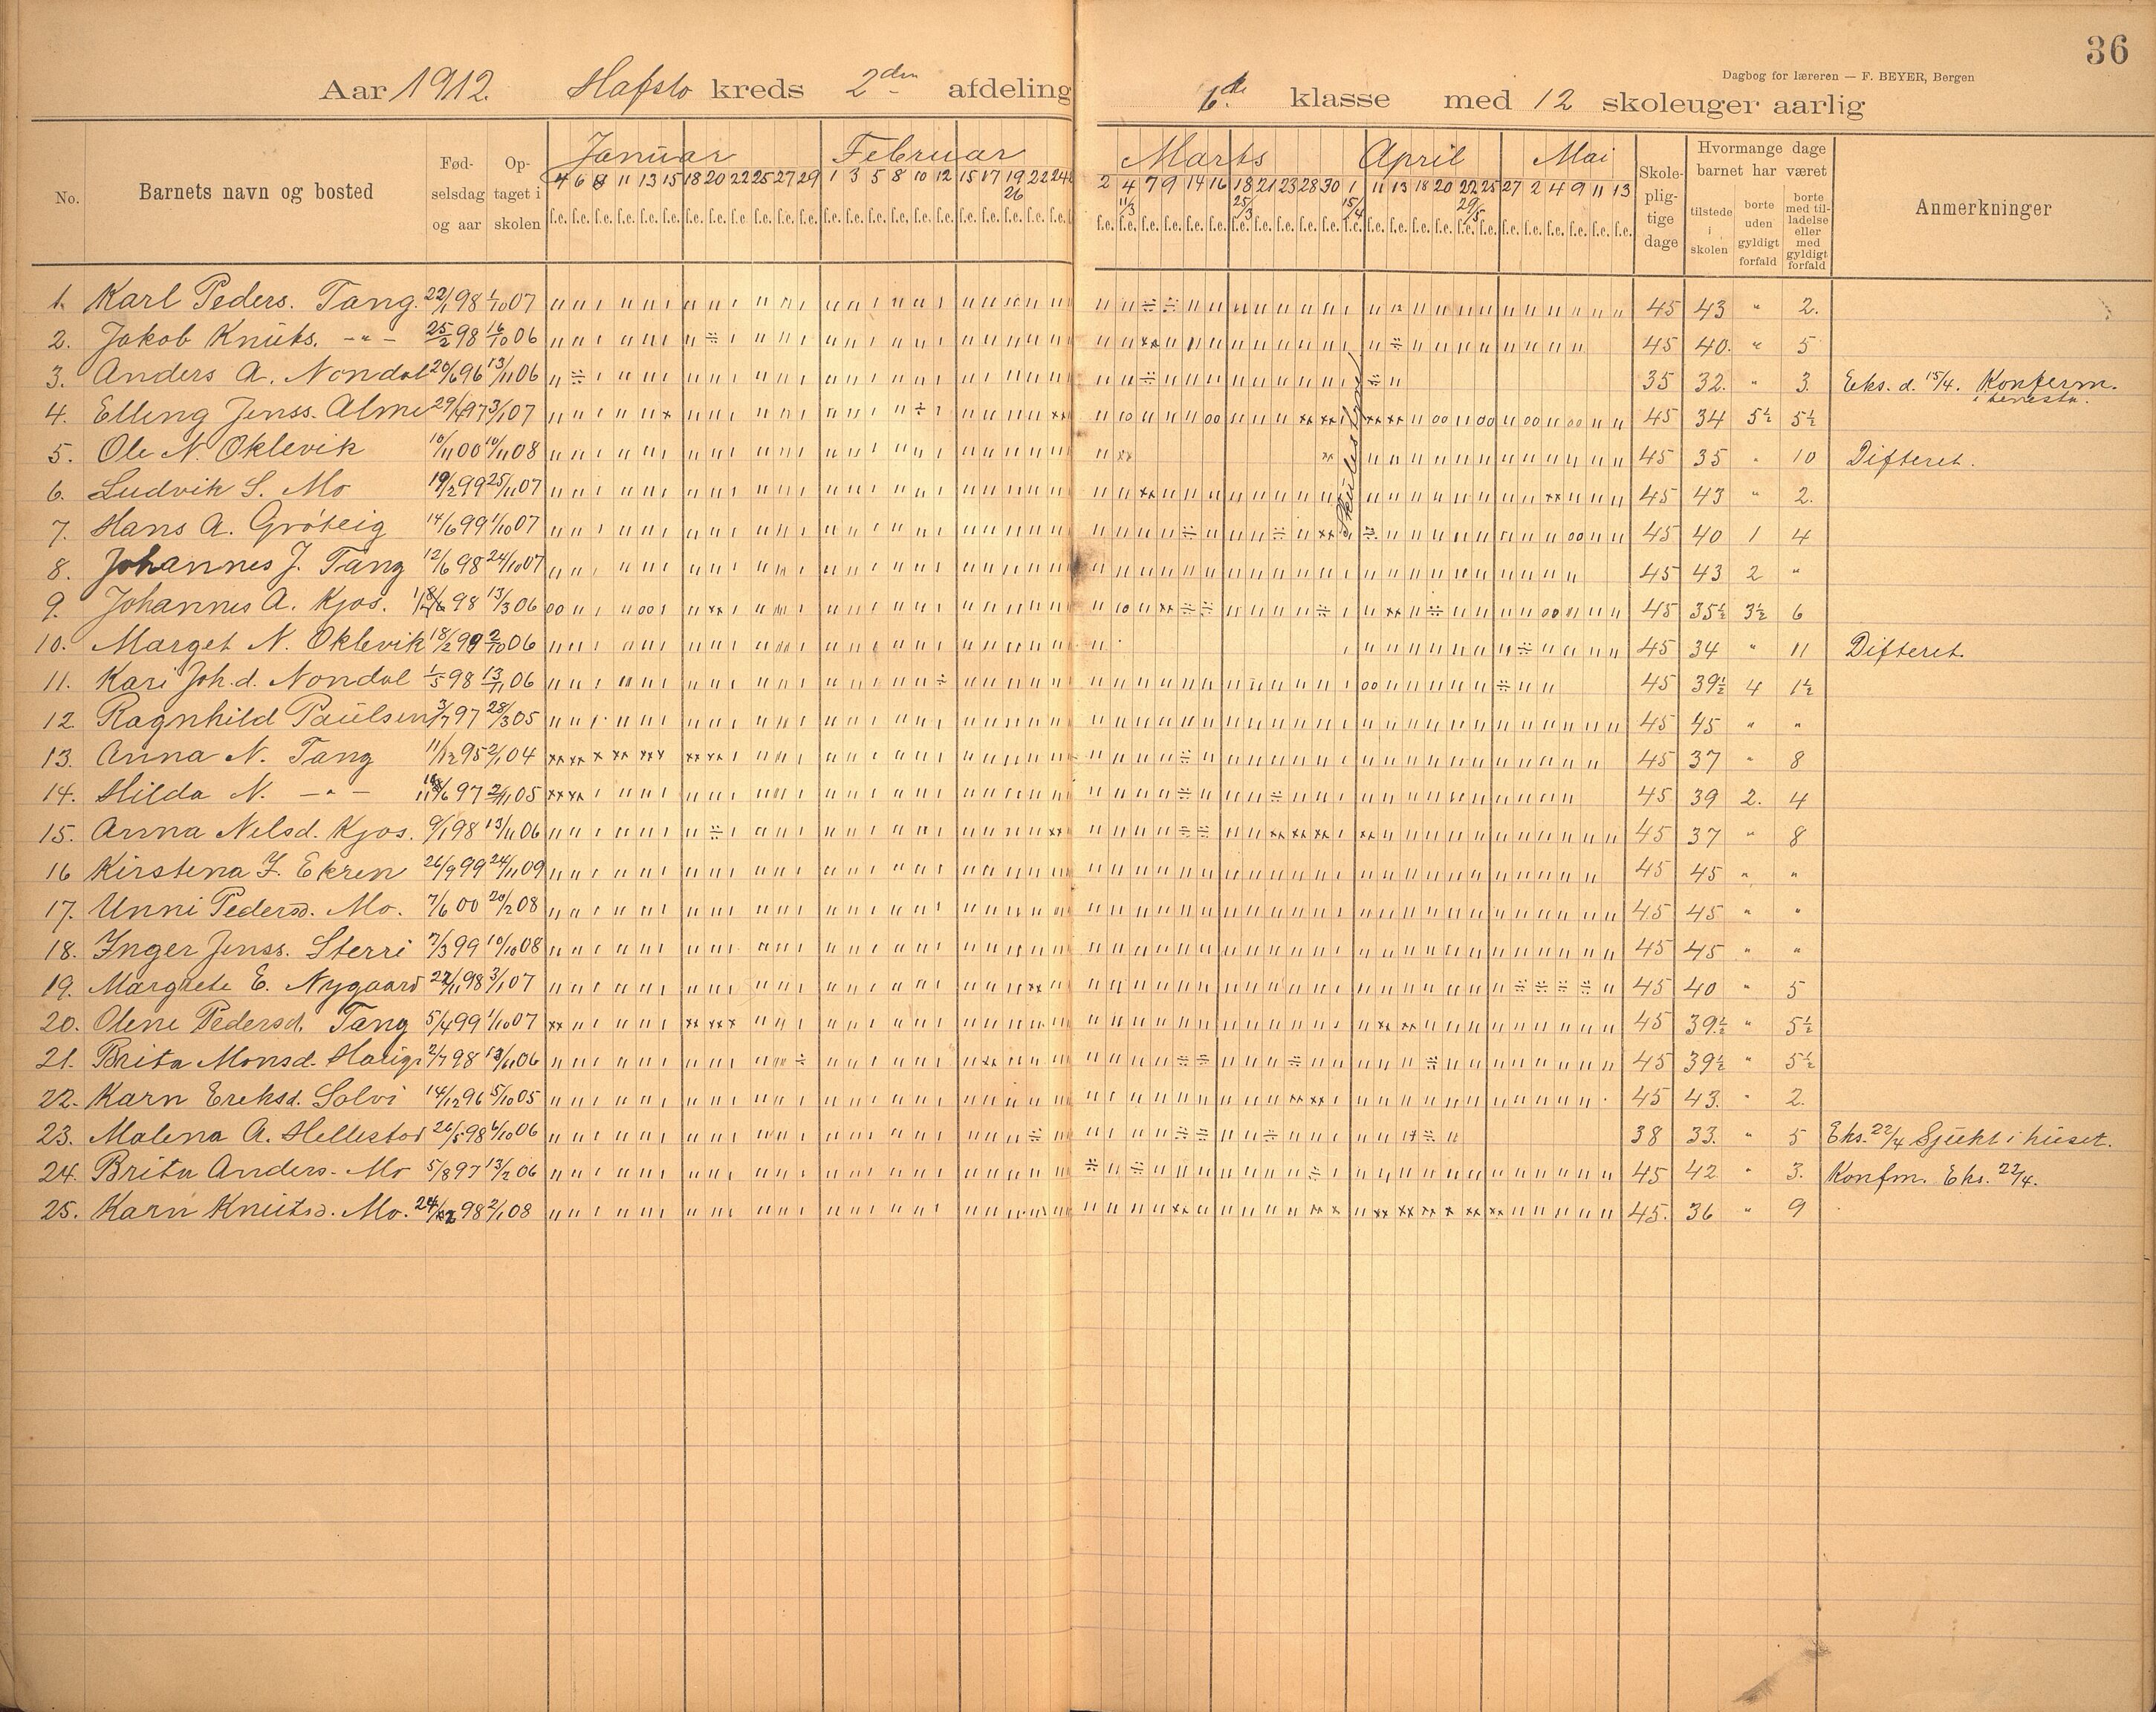 36
Dagbog for læreren — F. BEYER, Bergen
Aar 1912. Hafslo kreds 2den afdeling 6te klasse med 12 skoleuger aarlig
No. Barnets navn og bosted Fødselsdag og aar Optaget i skolen Januar Februar Marts April Mai Skolepligtige dage Hvormange dage barnet har været Anmerkninger
tilstede i skolen borte uden gyldigt forfald borte med tilladelse eller med gyldigt forfald
4 6 8 11 13 15 18 20 22 25 27 29 1 3 5 8 10 12 15 17 19 22 24 2 4 7 9 14 16 18 21 23 28 30 1 11 13 18 20 22 25 27 2 4 9 11 13
26 11/3 25/3 15/4 29/5
1. Karl Peders. Tang. 22/1 98 1/10 07 45 43 " 2.
2. Jakob Knuts. -"- 25/2 98 16/10 06 45 40. " 5
3. Anders A. Nondal 20/6 96 13/11 06 35 32. " 3. Eks. d. 15/4. Konferm.
4. Elling Jenss. Alme 29/4 97 3/1 07 45 34 5½ 5½
5. Ole N. Oklevik 10/11 00 10/11 08 45 35 " 10 Difterit.
6. Ludvik S. Mo 19/2 99 25/11 07 45 43 " 2.
7. Hans A. Gróteig 14/6 99 1/10 07 45 40 1 4
8. Johannes J. Tang 12/6 98 24/10 07 45 43 2 "
9. Johannes A. Kjos. 98 13/3 06 45 35½ 3½ 6
10. Marget N. Oklevik 18/2 99 2/10 06 45 34 " 11 Difterit.
11. Kari Joh.d. Nondal 1/5 98 13/11 06 45 39½ 4 1½
12 Ragnhild Paulsen 3/7 97 28/3 05 45 45 " "
13. Anna N. Tang 11/12 95 2/1 04 45 37 " 8
14. Hilda N. -"- 97 2/11 05 45 39 2. 4
15. Anna Nilsd. Kjos. 9/1 98 13/11 06 45 37 " 8
16 Kirstina J. Ekren 26/9 99 24/11 09 45 45 " "
17. Unni Pedersd. Mo. 7/6 00 20/2 08 45 45 " "
18. Inger Jenss. Sterri 7/3 99 10/10 08 45 45 " "
19. Margrete E. Nygaard 98 3/1 07 45 40 " 5
20. Oline Pedersd. Tang 5/4 99 1/10 07 45 39½ " 5½
21. Brita Monsd. 2/7 98 13/11 06 45 39½ " 5½
22. Karn Eriksd. Solvi 14/12 96 5/10 05 45 43. " 2.
23. Malena A. Hellestad 26/5 98 6/10 06 38 33. " 5 Eks. 22/4 Sjukt i huset.
24. Brita Anders. Mo 5/8 97 13/2 06 45 42 " 3. Konfm. Eks. 22/4.
25. Karn Knutsd. Mo. 98 2/1 08 45. 36 " 9